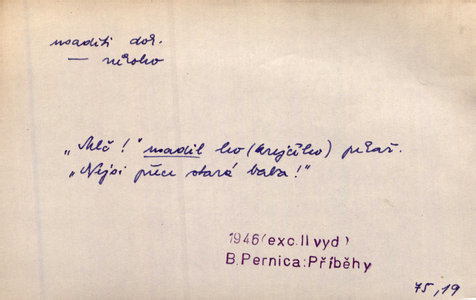 usaditi dok.
— někoho
„Mlč!" usadil ho (krejčího) pekař.
„Nejsi přece stará baba!"
1946 (exc. II vyd)
B. Pernica: Příběhy
75, 19